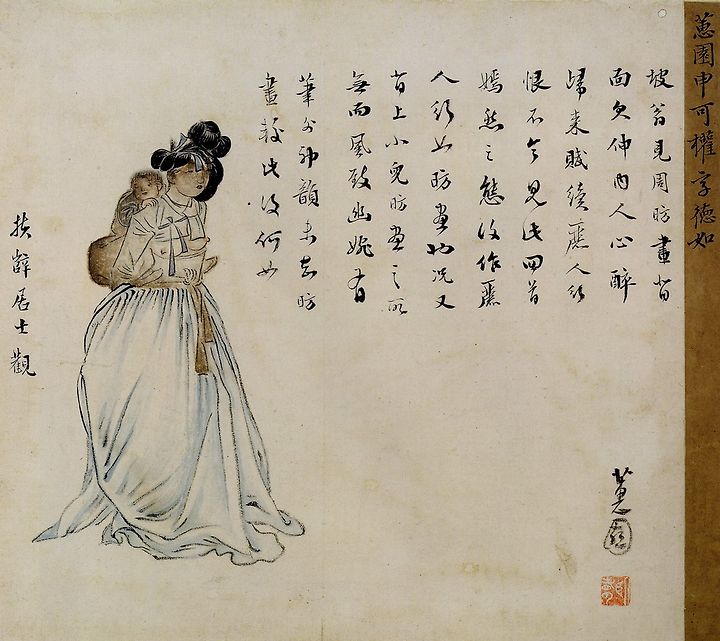 蕙園申可權字德如
坡翁見周昉畫背
面欠伸內人心醉
歸來賦續麗人行
恨不令見此回首
嫣然之態復作麗
人行如昉畫也況又
背上小兒昉畫之所
無而風致幽婉有
筆外神韻未知昉
畫較此復何如
扶薛居士觀
蕙園